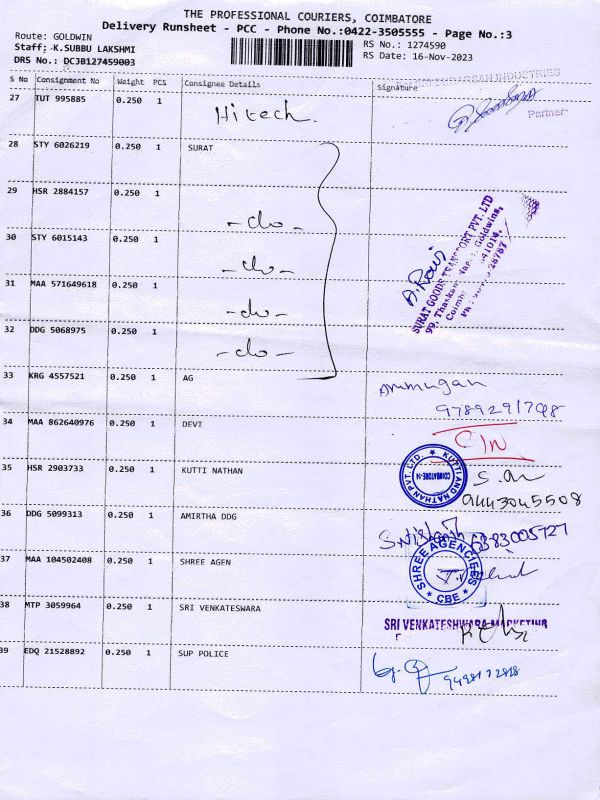 THE PROFESSIONAL COURIERS, COIMBATORE
Delivery Runsheet - PCC - Phone No.:0422-3505555 - Page No.:3
Route: GOLDWIN
Staff: K.SUBBU LAKSHMI
DRS No.: DCJB127459003
RS No.: 1274590
RS Date: 16-Nov-2023
S No Consignment No Weight PCS Consignee Details Signature
27 TUT 995885 0.250 1 Hitech. INDUSTRIES
Partner
28 STY 6026219 0.250 1 SURAT
29 HSR 2884157 0.250 1 - do -
30 STY 6015143 0.250 1 - do -
31 MAA 571649618 0.250 1 - do -
32 DDG 5068975 0.250 1 - do -
SURAT GOODS TRANSPORT PVT. LTD
33 KRG 4557521 0.250 1 AG Arumugan
9789291798
34 MAA 862640976 0.250 1 DEVI
35 HSR 2903733 0.250 1 KUTTI NATHAN
KUTTI AND NATHAN PVT. LTD.
COIMBATORE-14
9443045508
36 DDG 5099313 0.250 1 AMIRTHA DDG 6383005727
37 MAA 104502408 0.250 1 SHREE AGEN
SHREE AGENCIES
CBE
38 MTP 3059964 0.250 1 SRI VENKATESWARA
SRI VENKATESHWARA MARKETING
39 EDQ 21528892 0.250 1 SUP POLICE